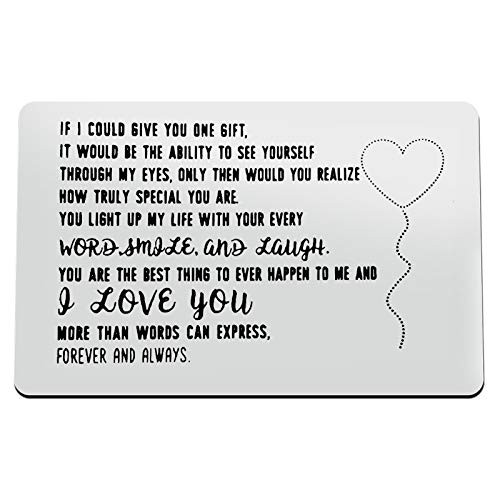 IF I COULD GIVE YOU ONE GIFT,
IT WOULD BE THE ABILITY TO SEE YOURSELF
THROUGH MY EYES, ONLY THEN WOULD YOU REALIZE
HOW TRULY SPECIAL YOU ARE.
YOU LIGHT UP MY LIFE WITH YOUR EVERY
WORD,SMILE, and LAUGH.
YOU ARE THE BEST THING TO EVER HAPPEN TO ME AND
I LOVE YOU
MORE THAN WORDS CAN EXPRESS,
FOREVER AND ALWAYS.